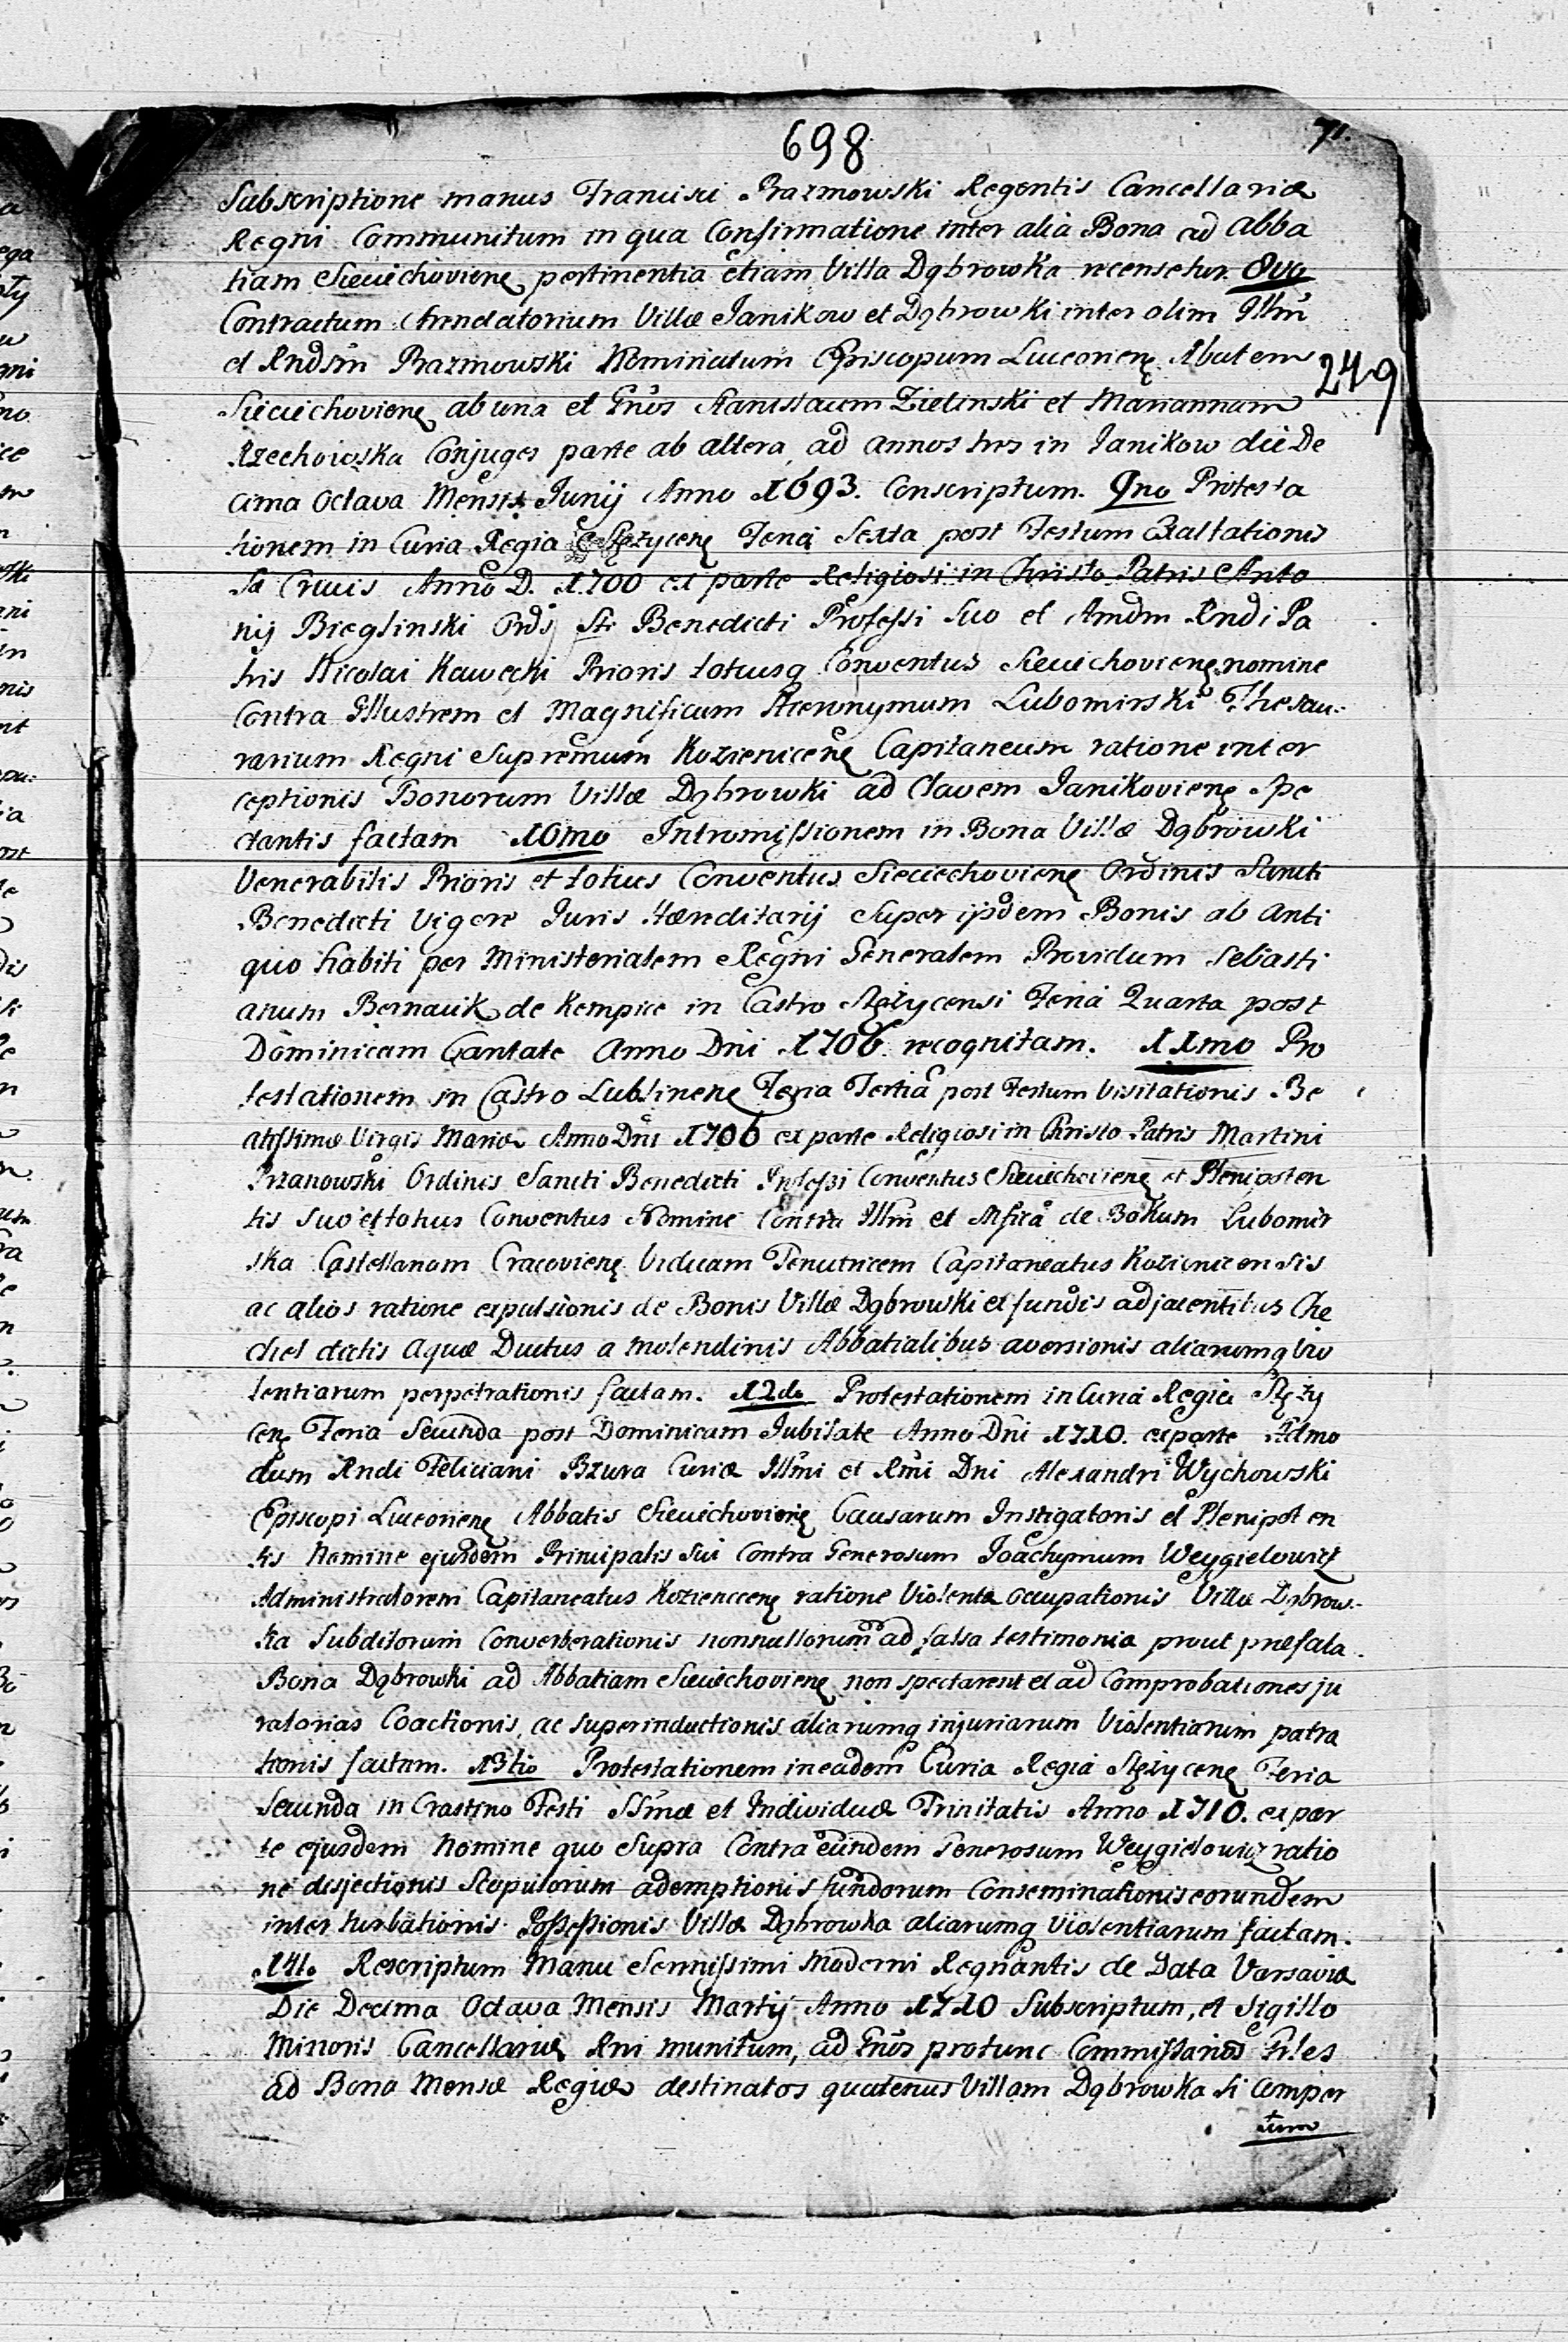 698
71.
Subscriptione manus Francisci Prazmowski Regentis Cancellariæ
Regni Communitum in qua Confirmatione inter alia Bona ad Abba
tiam Sieciechoviens pertinentia etiam Villa Dąbrowka recensetur. 8vo
Contractum Arendatorium Villæ Janikow et Dąbrowki inter olim Illm̃
et Rndsm̃ Prazmowski Nominatum Episcopum Luceoriens Abatem
249
Sieciechoviens ab una et Gños Stanislaum Zielinski et Mariannam
Rzechowska Conjuges parte ab altera, ad annos tres in Janikow die De
cima Octava Mensis Junij Anno 1693. Conscriptum. 9no Protesta
tionem in Curia Regia Stężycens Feria Sexta post Festum Exaltationis
S̃æ Crucis Anno D. 1700 ex parte Religiosi in Christo Patris Anto
nij Bieglinski Ords Sti Benedicti Professi Suo et Amdm Rndi Pa
tris Nicolai Kawecki Prioris totiusq Conventus Sieciechoviens nomine
Contra Illustrem et Magnificum Hieronymum Lubomirski Thesau:
rarium Regni Supremum Kozienicens Capitaneum ratione inter
ceptionis Bonorum Villæ Dąbrowki ad Clavem Janikoviens Spe
ctantis factam 10mo Intromissionem in Bona Villæ Dąbrowski
Venerabilis Prioris et totius Conventus Sieciechoviens Ordinis Sancti
Benedicti Vigore Juris Hæreditarij Super ijsdem Bonis ab Anti
quo habiti per Ministerialem Regni Generalem Providum Sebasti
anum Bernacik de Kempice in Castro Stężycensi Feria Quarta post
Dominicam Cantate Anno Dni 1706. recognitam. 11mo Pro
testationem in Castro Lublinens Feria Tertia post Festum Visitationis Be
atissimæ Virgis Mariæ Anno Dni 1706 ex parte Religiosi in Christo Patris Martini
Przanowski Ordinis Sancti Benedicti Professi Conventus Sieciechoviens et Plenipoten
tis Suo et totius Conventus Nomine Contra Illm̃ et Mficã de Bokum Lubomir
ska Castellanam Cracoviens Viduam Tenutricem Capitaneatus Kozienicensis
ac alios ratione expulsionis de Bonis Villæ Dąbrowski et fundis adjacentibus Che
chel dictis Aquæ Ductus a molendinis Abbatialibus aversionis aliarumq Vio
lentiarum perpetrationis factam. 12do Protestationem in Curia Regia Stęży
cens Feria Secunda post Dominicam Jubilate Anno Dni 1710. ex parte Admo
dum Rndi Feliciani Bzura Curiæ Illmi et Rmi Dni Alexandri Wychowski
Episcopi Luceoriens Abbatis Sieciechoviens Causarum Instigatoris et Plenipoten
tis Nomine ejusdem Principalis Sui Contra Generosum Joachymum Weygielowicz
Administratorem Capitaneatus Koziencens ratione Violentæ Occupationis Villæ Dąbrow:
ka Subditorum Converberationis nonnullorum ad falsa testimonia prout præfata
Bona Dąbrowki ad Abbatiam Sieciechoviens non spectarent et ad Comprobationes ju
ratorias Coactionis, ac superinductionis aliarumq injuriarum Violentiarum patra
tionis factam. 13tio Protestationem in eadem Curia Regia Stężycens Feria
Secunda in Crastino Festi SSmæ et Individuæ Trinitatis Anno 1710. ex par
te ejusdem Nomine quo Supra Contra eundem Generosum Weygielowicz ratio
ne disjectionis Scopulorum ademptionis fundorum Conseminationis eorundem
inter turbationis Possessionis Villæ Dąbrowka aliarumq Violentiarum factam.
14to Rescriptum Manu Serenissimi Moderni Regnantis de Data Varsaviæ
Die Decima Octava Mensis Martij Anno 1710 Subscriptum, et Sigillo
Minoris Cancellariæ Rni munitum, ad Gños protunc Commissarios
ad Bona Mensæ Regiæ destinatos quatenus Villam Dąbrowka si Comper
tum